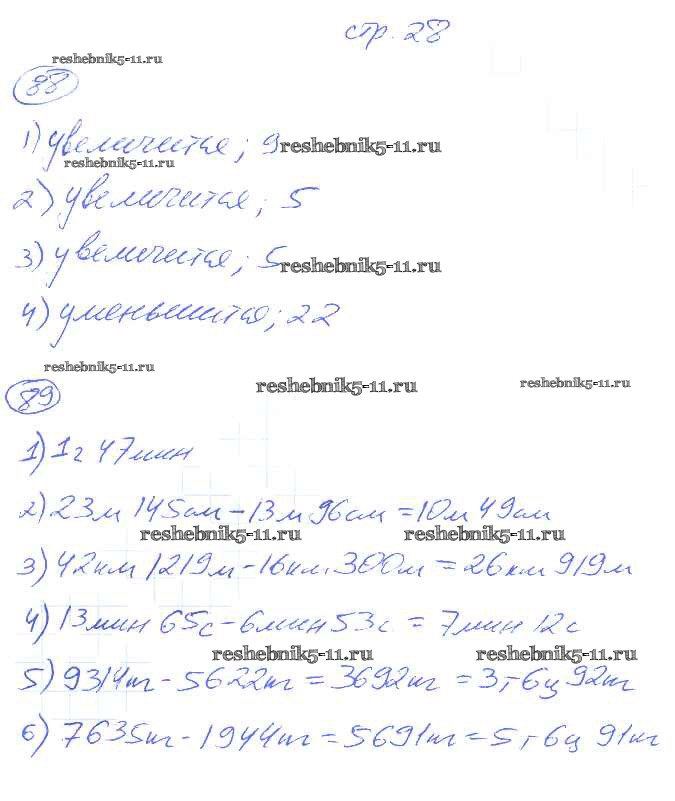 стр. 28
reshebnik5-11.ru
88
1) увеличится; 9 reshebnik5-11.ru
reshebnik5-11.ru
2) увеличится; 5
3) увеличится; 5 reshebnik5-11.ru
4) уменьшится; 22
reshebnik5-11.ru
reshebnik5-11.ru reshebnik5-11.ru
89
1) 1г 47мин
2) 23м 145см - 13м 96см = 10м 49см
reshebnik5-11.ru reshebnik5-11.ru
3) 42км 1219м - 16км 300м = 26км 919м
4) 13мин 65с - 6мин 53с = 7мин 12с
reshebnik5-11.ru reshebnik5-11.ru
5) 9314кг - 5622кг = 3692кг = 3т 6ц 92кг
6) 7635кг - 1944кг = 5691кг = 5т 6ц 91кг